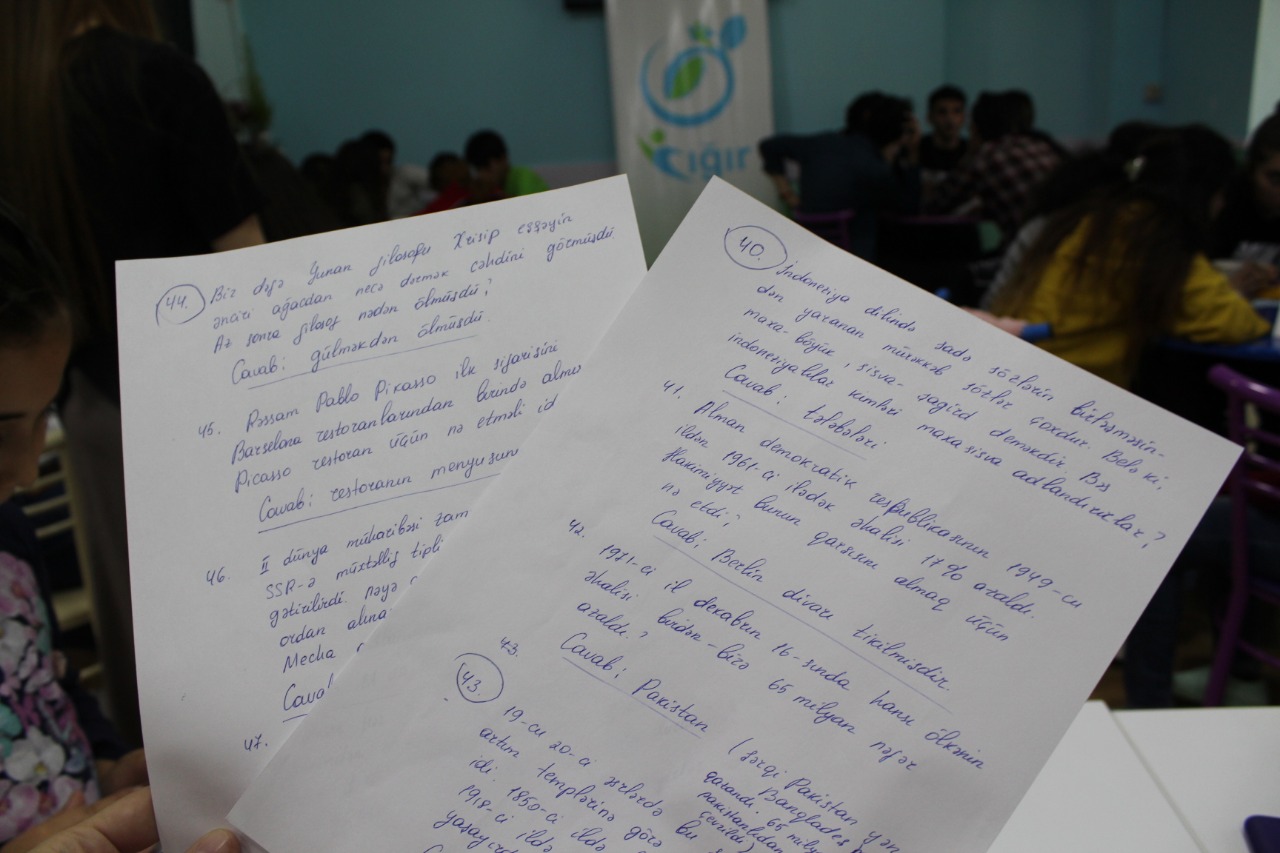 Cığır
44. Bir dəfə Yunan filosofu Xrisip eşşəyin
ənciri ağacdan necə dərmək cəhdini görmüşdü.
Az sonra filosof nədən ölmüşdü?
Cavab: gülməkdən ölmüşdü.
45. Rəssam Pablo Pikasso ilk sifarişini
Barselona restoranlarından birində almış
Picasso restoran üçün nə etməli id
Cavab: restoranın menyusunu
46. II dünya müharibəsi zam
SSR-ə müxtəlif tipli
gətirilirdi. nəyə
ordan alına
Mecha
Cava
47.
40. İndoneziya dilində sadə sözlərin birləşməsin-
dən yaranan mürəkkəb sözlər çoxdur. Belə ki,
maxa-böyük, sisva- şagird deməkdir. Bəs
indoneziyalılar kimləri maxasisva adlandırırlar?
Cavab: tələbələri
41. Alman demokratik respublikasının 1949-cu
ildən 1961-ci ilədək əhalisi 17% azaldı.
Hakimiyyət bunun qarşısını almaq üçün
nə etdi?
Cavab: Berlin divarı tikilmişdir.
42. 1971-ci il dekabrın 16-sında hansı ölkənin
əhalisi birdən-birə 65 milyon nəfər
azaldı?
Cavab: Pakistan (Şərqi Pakistan yəni
Bangladeş
yarandı. 65 mily
pakistanlıdan
çevrildi)
43.
43. 19-cu 20-ci əsrlərdə
artım templərinə görə
idi. 1850-ci ildə bu
1918-ci ildə
yaşayırd